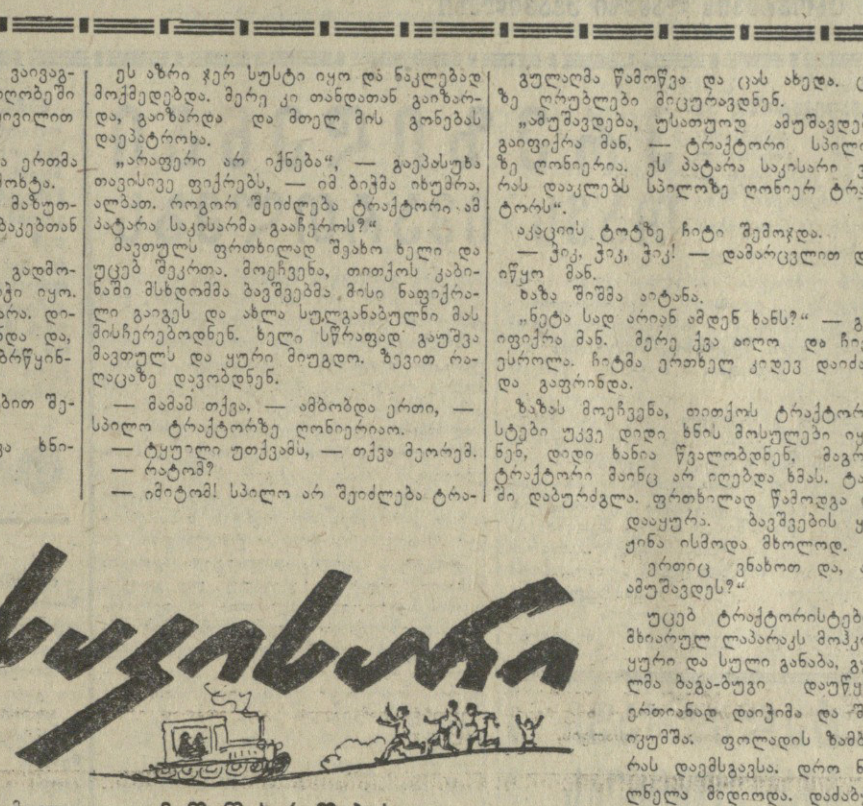 ვაივაგ-
ივილით
ა ერთმა
მოხტა.
მაზუთ-
ბაკებთან
გადმო-
ჭი იყო.
არა. დი-
ნდა და,
ბრწყინ-
ბით შე-
ვა ხნი-
ეს აზრი ჯერ სუსტი იყო და ნაკლებად
მოქმედებდა. მერე კი თანდათან გაიზარ-
და, გაიზარდა და მთელ მის გონებას
დაეპატრონა.
„არაფერი არ იქნება“, — გაეპასუხა
თავისივე ფიქრებს, — იმ ბიჭმა იხუმრა,
ალბათ. როგორ შეიძლება ტრაქტორი ამ
პატარა საკისარმა გააჩეროს?“
მავთულს ფრთხილად შეახო ხელი და
უცებ შეკრთა. მოეჩვენა, თითქოს კაბი-
ნაში მსხდომმა ბავშვებმა მისი ნაფიქრა-
ლი გაიგეს და ახლა სულგანაბულნი მას
მისჩერებოდნენ. ხელი სწრაფად გაუშვა
მავთულს და ყური მიუგდო. ზევით რა-
ღაცაზე დავობდნენ.
— მამამ თქვა, — ამბობდა ერთი, —
სპილო ტრაქტორზე ღონიერიაო.
— ტყუილი უთქვამს, — თქვა მეორემ.
— რატომ?
— იმიტომ! სპილო არ შეიძლება ტრა-
გულაღმა წამოწვა და ცას ახედა.
ზე ღრუბლები მიცურავდნენ.
„ამუშავდება, უსათუოდ ამუშავდე
გაიფიქრა მან, — ტრაქტორი სპილო
ზე ღონიერია. ეს პატარა საკისარი
რას დააკლებს სპილოზე ღონიერ ტრა
ტორს“.
აკაციის ტოტზე ჩიტი შემოჯდა.
— ჭიკ, ჭიკ, ჭიკ! — დამარცვლით დ
იწყო მან.
ზაზა შიშმა აიტანა.
„ნეტა სად არიან ამდენ ხანს?“ — გ
იფიქრა მან. მერე ქვა აიღო და ჩიტ
ესროლა. ჩიტმა ერთხელ კიდევ დაიძა
და გაფრინდა.
ზაზას მოეჩვენა, თითქოს ტრაქტორ
სტები უკვე დიდი ხნის მოსულები იყ
ნენ, დიდი ხანია წვალობდნენ. მაგრ
ტრაქტორი მაინც არ იღებდა ხმას. ტა
ში დაბურძგლა. ფრთხილად წამოდგა
დააყურა. ბავშვების ყ
ჟინა ისმოდა მხოლოდ.
ერთიც ვნახოთ და, ა
ამუშავდეს?“
უცებ ტრაქტორისტებ
მხიარულ ლაპარაკს მოჰკ
ყური და სული განაბა, გ
ლმა ბაგა-ბუგი დაუწყ
ერთიანად დაიჭიმა და მ
იკუმშა. ფოლადის ზამბ
რას დაემსგავსა. დრო ნ
ლნელა მიდიოდა. დაძაბ
საკისარი